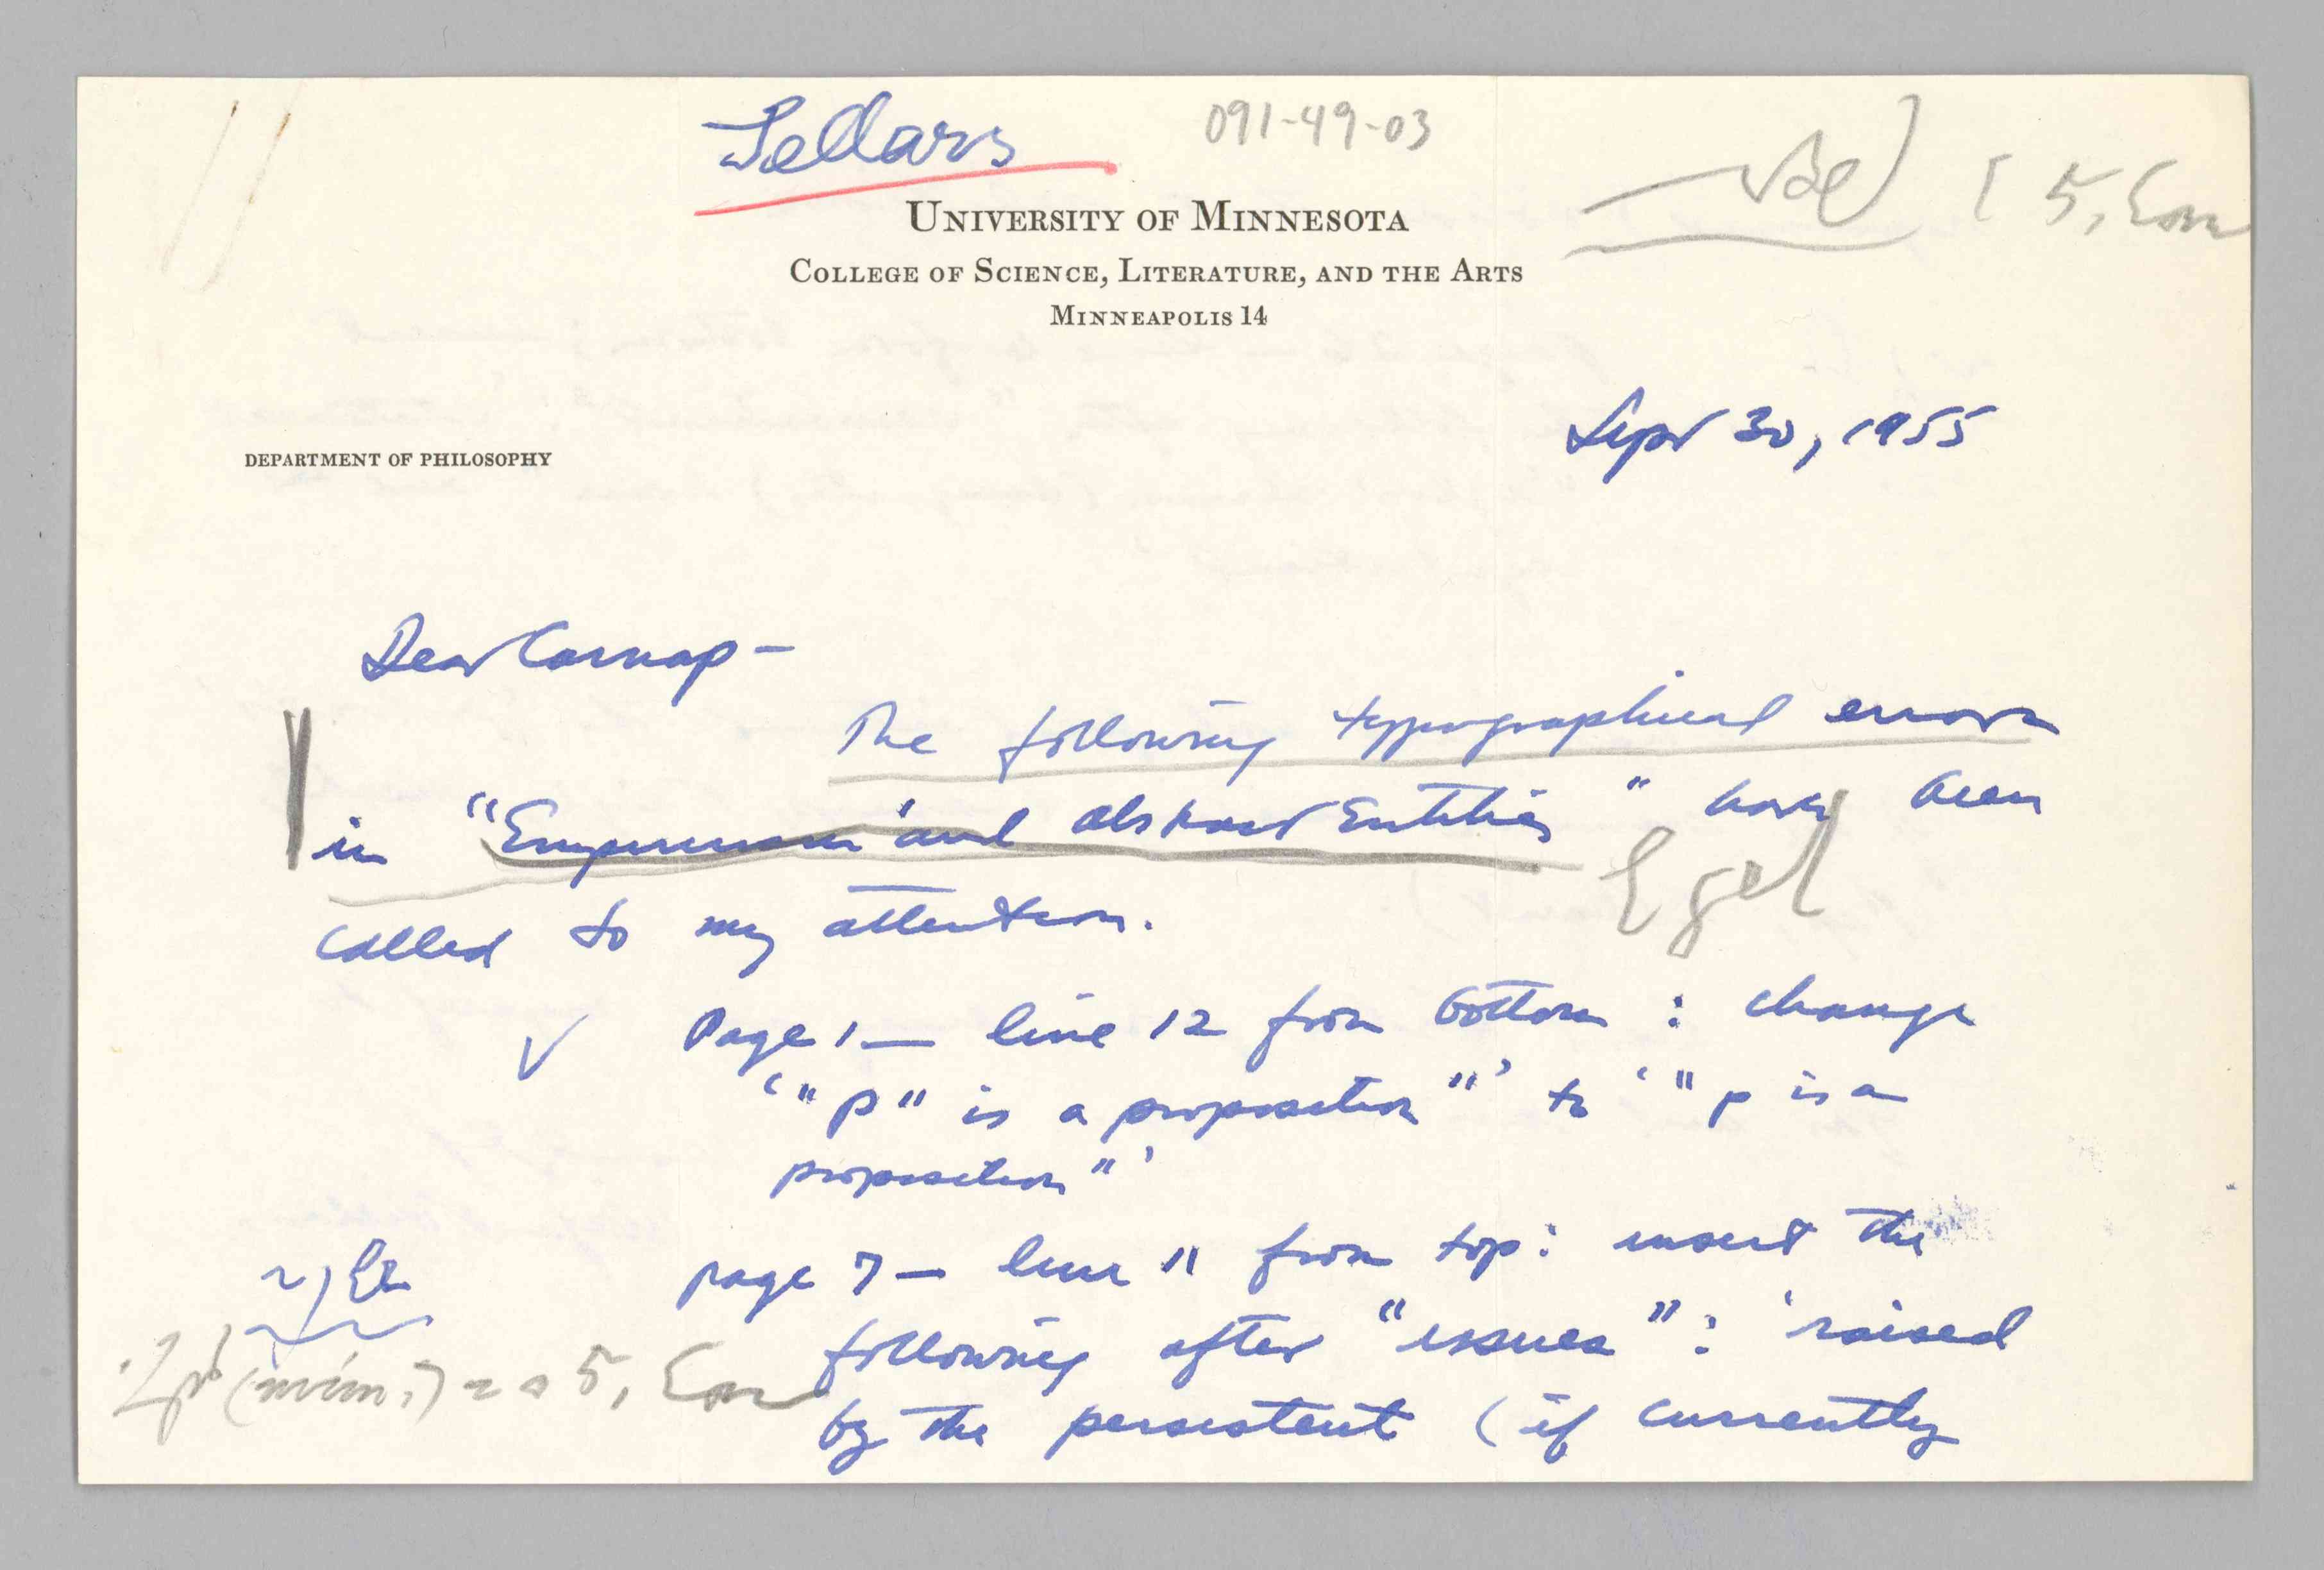 Sellars
091-49-03
UNIVERSITY OF MINNESOTA
COLLEGE OF SCIENCE, LITERATURE, AND THE ARTS
MINNEAPOLIS 14
Sept 30, 1955
DEPARTMENT OF PHILOSOPHY
Dear Carnap –
The following typographical errors
in "Empiricism and Abstract Entities" have been
called to my attention.
√ Page 1 — line 12 from bottom : change
‘"p" is a proposition"’ to ‘"p is a
proposition"’
page 7 — line 11 from top: insert the
following after "issues": ‘raised
by the persistent (if currently